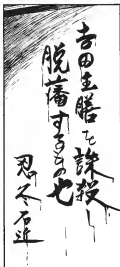 吉田主膳を誅殺し
脱藩するもの也
忍冬右近